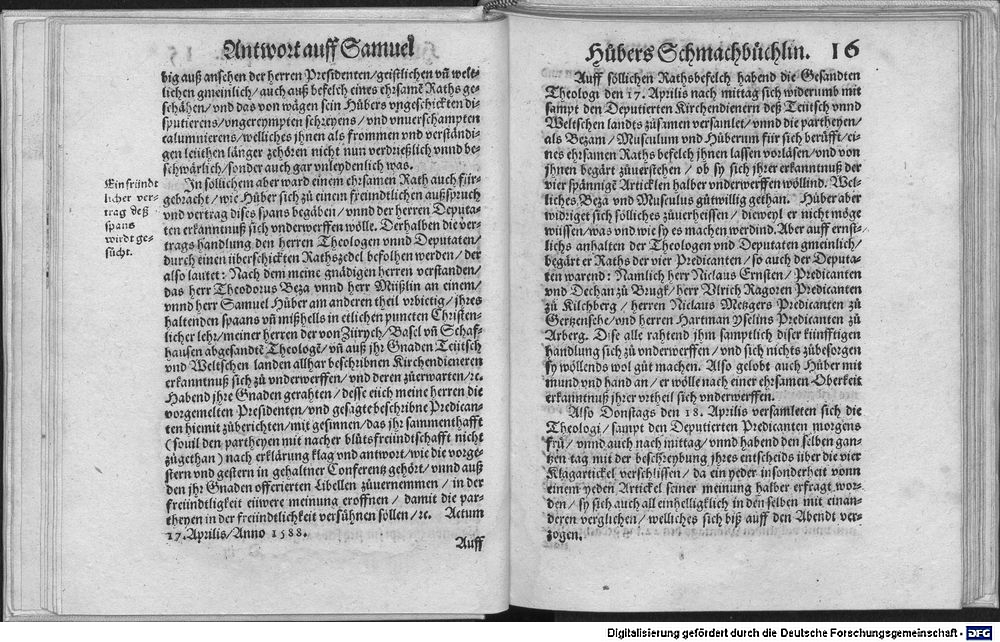 Antwort auff Samuel
big auß anschen der herren Presidenten/geistlichen vñ welt-
lichen gmeinlich/auch auß befelch eines ehrsamẽ Raths ge-
schåhen/vnd das von wågen sein Hůbers vngeschickten di-
sputierens/vngereympten schreyens/vnd vnuerschampten
calumnierens/welliches jhnen als frommen vnd verståndi-
gen leüthen långer zehören nicht nun verdrießlich vnnd be-
schwårlich/sonder auch gar vnleydenlich was.
Ein fründt
licher ver-
trag deß
spans
wirdt ge-
sůcht.
In söllichem aber ward einem ehrsamen Rath auch für-
gebracht/wie Hůber sich zů einem freündtlichen außspruch
vnd vertrag dises spans begåben/vnnd der herren Deputa-
ten erkanntnuß sich vnderwerffen wölle. Derhalben die ver-
trags handlung den herren Theologen vnnd Deputaten/
durch einen überschickten Rathszedel befolhen werden/der
also lautet: Nach dem meine gnådigen herren verstanden/
das herr Theodorus Beza vnnd herr Müßlin an einem/
vnnd herr Samuel Hůber am anderen theil vrbietig/jhres
haltenden spaans vñ mißhells in etlichen puncten Christen-
licher lehr/meiner herren der von Zürych/Basel vñ Schaf-
hausen abgesandtẽ Theologẽ/vñ auß jhr Gnaden Teütsch
vnd Weltschen landen allhar beschribnen Kirchendieneren
erkanntnuß sich zů vnderwerffen/vnd deren zůerwarten/ꝛc.
Habend jhre Gnaden gerahten/desse eüch meine herren die
vorgemelten Presidenten/vnd gesagte beschribne Predican-
ten hiemit zůberichten/mit gesinnen/das jhr samenthafft
(souil den partheyen mit nacher blůtsfreündtschafft nicht
zůgethan) nach erklårung klag vnd antwort/wie die vorge-
stern vnd gestern in gehaltner Conferentz gehört/vnnd auß
den jhr Gnaden offerierten Libellen zůuernemmen/in der
freündtligkeit eüwere meinung eroffnen/damit die par-
theyen in der freündtlichkeit versühnen söllen/ꝛc. Actum
17. Aprilis/Anno 1588.
Auff
Hůbers Schmachbüchlin. 16
Auff söllichen Rathsbefelch habend die Gesandten
Theologi den 17. Aprilis nach mittag sich widerumb mit
sampt den Deputierten Kirchendienern deß Teütsch vnnd
Weltschen landts zůsamen versamlet/vnnd die partheyen/
als Bezam/Musculum vnd Hůberum für sich berůfft/ei-
nes ehrsamen Raths befelch jhnen lassen vorlåsen/vnd von
jhnen begårt zůuerstehen/ob sy sich jhrer erkanntnuß der
vier spånnigẽ Articklen halber vnderwerffen wöllind. Wel-
liches Beza vnd Musculus gůtwillig gethan. Hůber aber
widriget sich sölliches zůuerheissen/dieweyl er nicht möge
wüssen/was vnd wie sy es machen werdind. Aber auff ernst-
lichs anhalten der Theologen vnd Deputaten gmeinlich/
begårt er Raths der vier Predicanten/so auch der Deputa-
ten warend: Namlich herr Niclaus Ernsten/Predicanten
vnd Dechan zů Brugk/herr Vlrich Ragoren Predicanten
zů Kilchberg/herren Niclaus Metzgers Predicanten zů
Gertzensche/vnd herren Hartman Yselins Predicanten zů
Arberg. Dise alle rahtend jhm samptlich diser künfftigen
handlung sich zů vnderwerffen/vnd sich nichts zůbesorgen
sy wöllends wol gůt machen. Also gelobt auch Hůber mit
mund vnd hand an/er wölle nach einer ehrsamen Oberkeit
erkanntnuß jhrer vrtheil sich vnderwerffen.
Also Donstags den 18. Aprilis versamleten sich die
Theologi/sampt den Deputierten Predicanten morgens
frů/vnnd auch nach mittag/vnnd habend den selben gan-
tzen tag mit der beschreybung jhres entscheids über die vier
Klagartickel verschlissen/da ein yeder insonderheit vonn
einem yeden Artickel seiner meinung halber erfragt wor-
den/sy sich auch all einhelligklich in den selben mit einan-
deren verglichen/welliches sich biß auff den Abendt ver-
zogen.
Digitalisierung gefördert durch die Deutsche Forschungsgemeinschaft - DFG